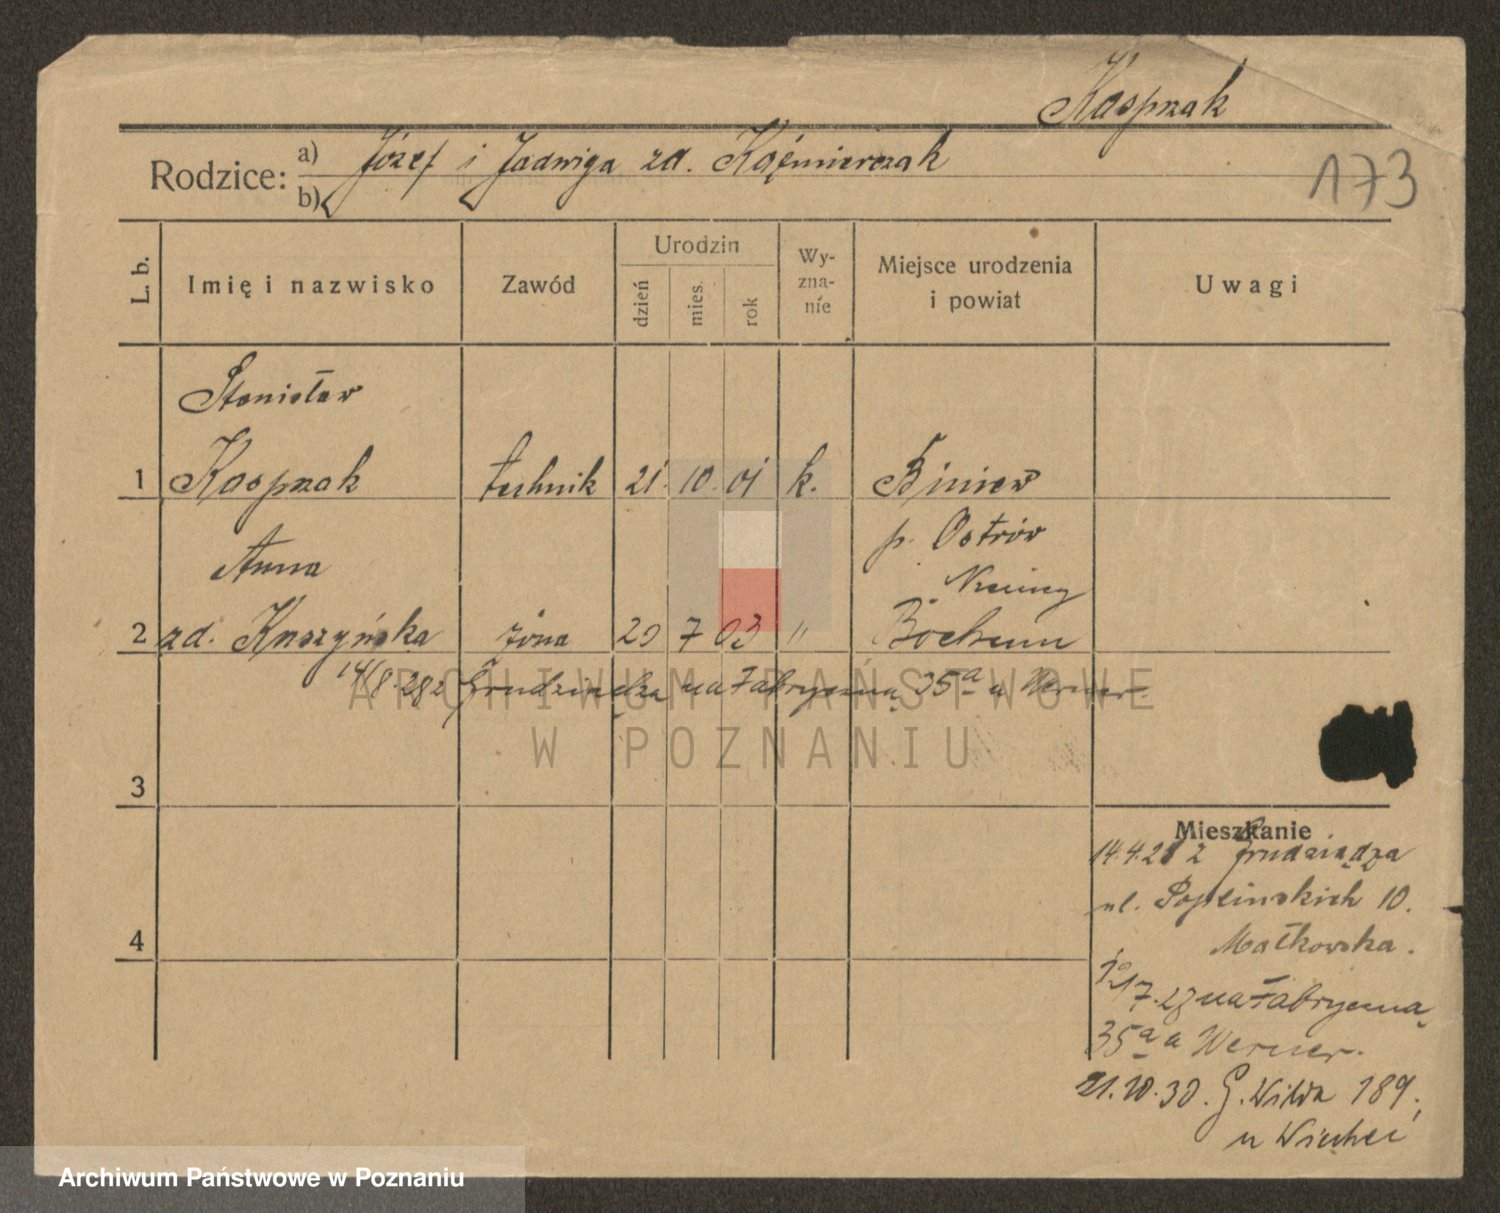 Kasprzak
Rodzice: a) Józef i Jadwiga zd. Kaźmierczak
b)
173
L. b.
Imię i nazwisko
Zawód
Urodzin
dzień
mies.
rok
Wy-
zna-
nie
Miejsce urodzenia
i powiat
Uwagi
Stanisław
1 Kasprzak technik 21. 10. 01 k. Biniew
p. Ostrów
Anna
Niemcy
2 zd. Kuszyńska żona 20 7 03 " Bochum
14/8.28 z Grudziądza na Fabryczną 35a u Werner
ARCHIWUM PAŃSTWOWE
W POZNANIU
3
4
Mieszkanie
14.4.28 z Grudziądza
ul. Poplińskich 10.
Małkowska.
17.28 na Fabryczną
35a u Werner.
21.10.30. G. Wilda 189.
u
Archiwum Państwowe w Poznaniu